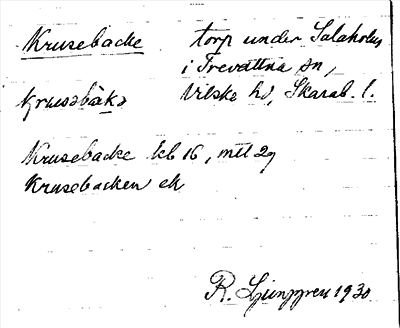 Krusebacke torp under Salaholm
i Trevattna sn,
krusəbàkə Vilske hd, Skarab. l.
Krusebacke kb 16, mtl 29
Krusebacken ek
R. Ljunggren 1930